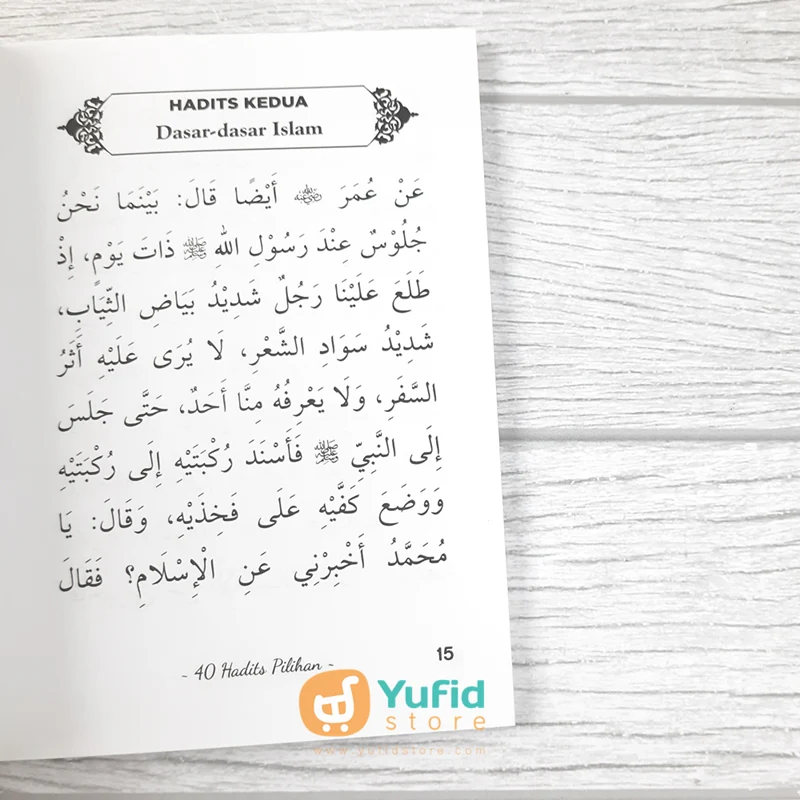 HADITS KEDUA
Dasar-dasar Islam
عَنْ عُمَرَ ﵁ أَيْضًا قَالَ: بَيْنَمَا نَحْنُ
جُلُوْسٌ عِنْدَ رَسُوْلِ اللهِ ﷺ ذَاتَ يَوْمٍ، إِذْ
طَلَعَ عَلَيْنَا رَجُلٌ شَدِيْدُ بَيَاضِ الثِّيَابِ،
شَدِيْدُ سَوَادِ الشَّعْرِ، لَا يُرَى عَلَيْهِ أَثَرُ
السَّفَرِ، وَلَا يَعْرِفُهُ مِنَّا أَحَدٌ، حَتَّى جَلَسَ
إِلَى النَّبِيِّ ﷺ فَأَسْنَدَ رُكْبَتَيْهِ إِلَى رُكْبَتَيْهِ
وَوَضَعَ كَفَّيْهِ عَلَى فَخِذَيْهِ، وَقَالَ: يَا
مُحَمَّدُ أَخْبِرْنِي عَنِ الْإِسْلَامِ؟ فَقَالَ
~ 40 Hadits Pilihan ~
15
Yufid
store
www.yufidstore.com